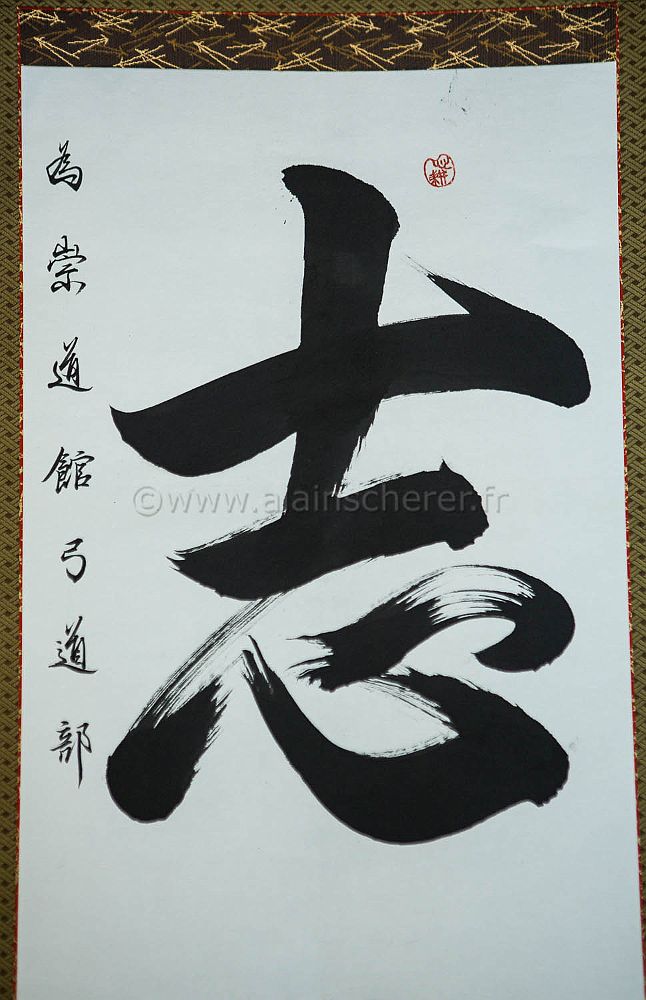 志
為崇道館弓道部
©www.alainscherer.fr